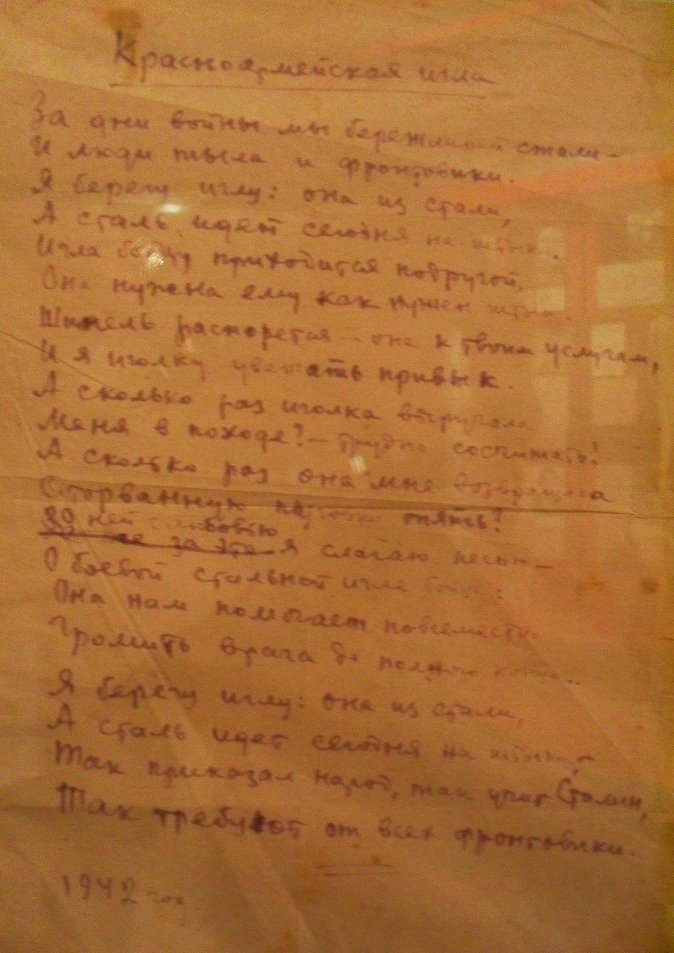 Красноармейская игла
За дни войны мы бережливей стали –
И люди тыла и фронтовики.
Я берегу иглу: она из стали,
А сталь идет сегодня на штыки.
Игла бойцу приходится подругой,
Она нужна ему как нужен штык.
Шинель распорется – она к твоим услугам,
И я иголку уважать привык.
А сколько раз иголка выручала
Меня в походе? – Трудно сосчитать!
А сколько раз она мне возвращала
Оторванную опять?
О ней с любовью
за это я слагаю песню –
О боевой стальной игле бойца:
Она нам помогает повсеместно
Громить врага до полного конца..
Я берегу иглу: она из стали,
А сталь идет сегодня на штыки, –
Так приказал народ, так учит Сталин,
Так требуют от всех фронтовики.
1942 год.